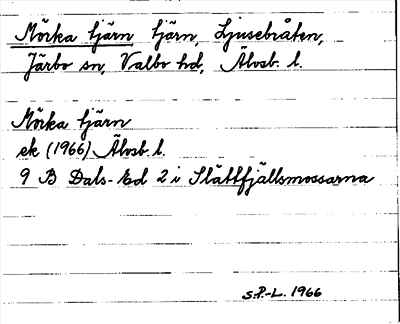 Mörka tjärn tjärn, Ljusebråten,
Järbo sn, Valbo hd, Älvsb. l.
Mörka tjärn
ek (1966) Älvsb. l.
9 B Dals-Ed 2 i Slättfjällsmossarna
S.P.-L. 1966